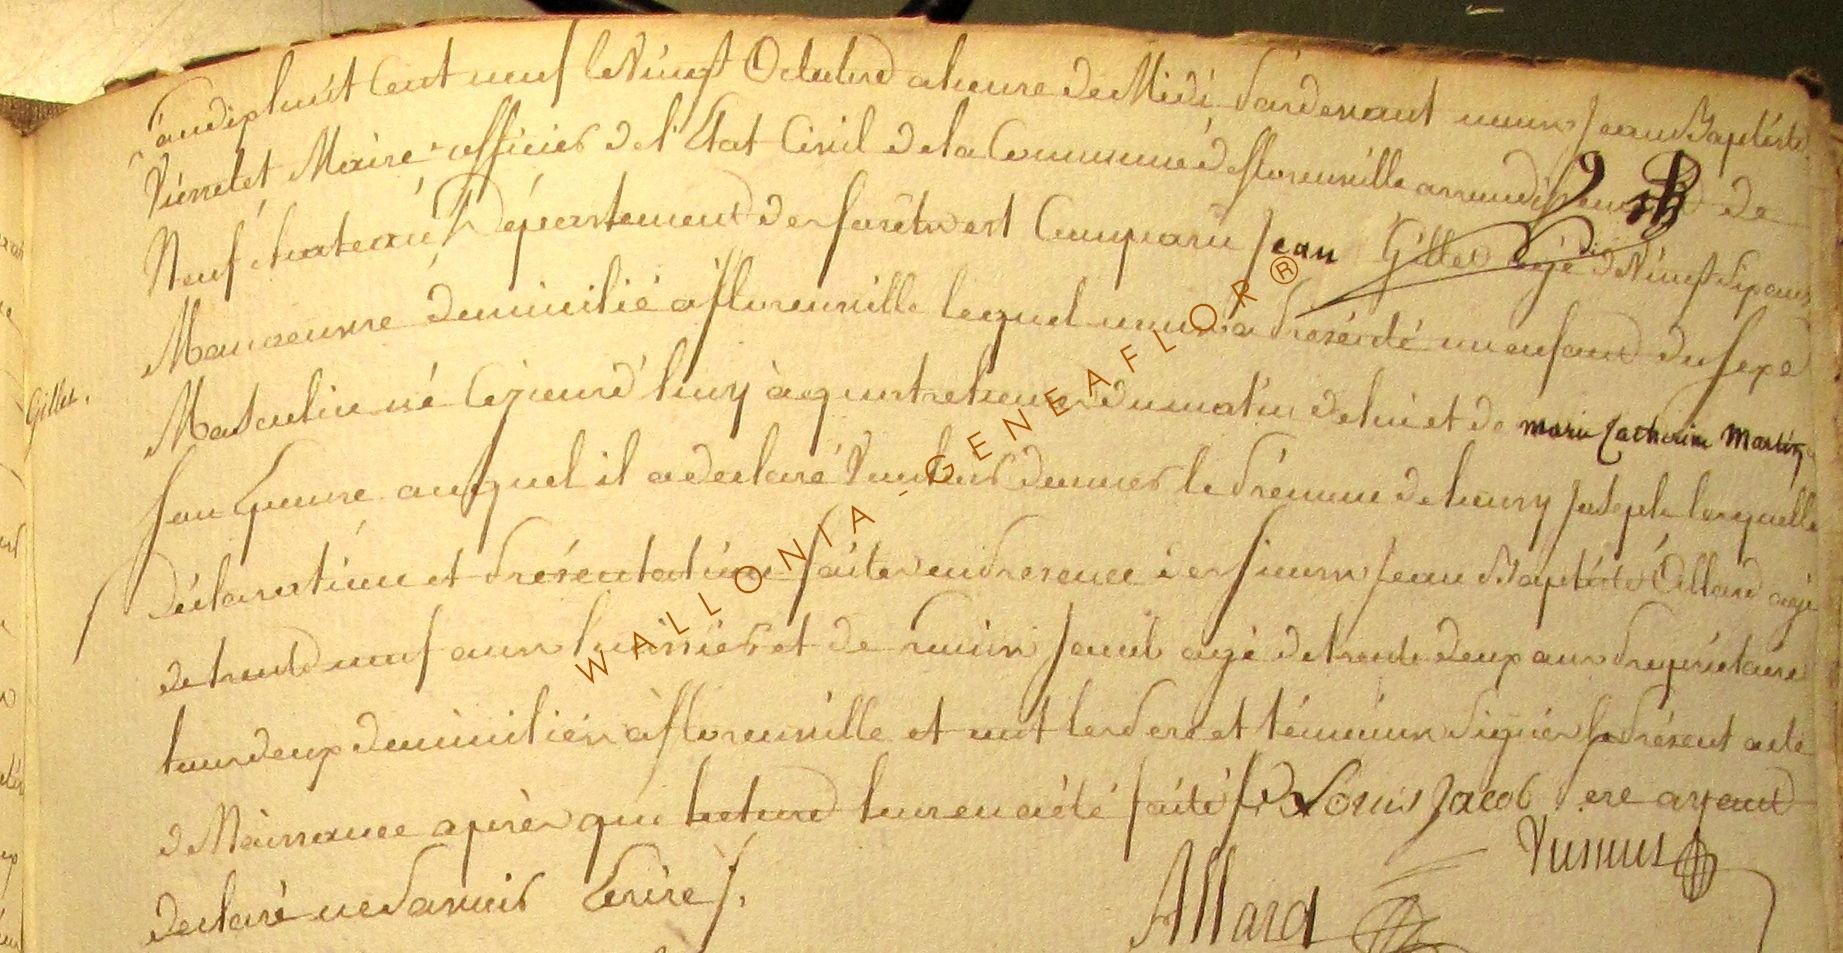 L'an dixhuit Cent neuf le Vingt Octobre a heure de Midi Pardevant nous Jean Baptiste
Maire officier de l'Etat Civil de la Commune de florenville arrondissement de
Neufchateau Département des forêts est Comparu Jean Gilles agé de Vingt six ans
Manoeuvre domicilié a florenville lequel nous a Présenté un enfant du sexe
Gilles.
Masculin né Cejourd'huy à quatre heures du matin de lui et de marie Catherine Martin
son Epouse auquel il a declaré Vouloir donner le Prénom de henry Joseph laquelle
Déclaration et Présentation faites en Presence des sieurs Jean Baptiste Allard agé
de trente neuf ans huissier et de Louis Jacob agé de trente deux ans Propriétaire
tous deux domiciliés à florenville et ont les Pere et témoins signés le Présent acte
de Naissance après que lecture leur en a été faite Louis Jacob Pere ayant
declaré ne Savoir Ecrire
Allard
WALLONIA - GENEAFLOR®